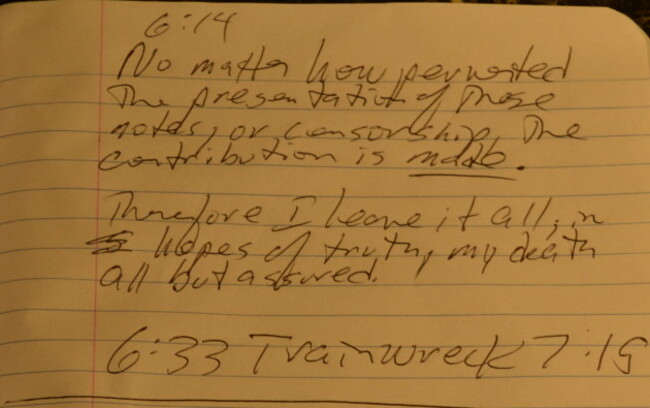 6:14
No matter how perverted
the presentation of these
notes, or censorship, the
contribution is made.
Therefore I leave it all, in
hopes of truth, my death
all but assured.
6:33 Trainwreck 7:15